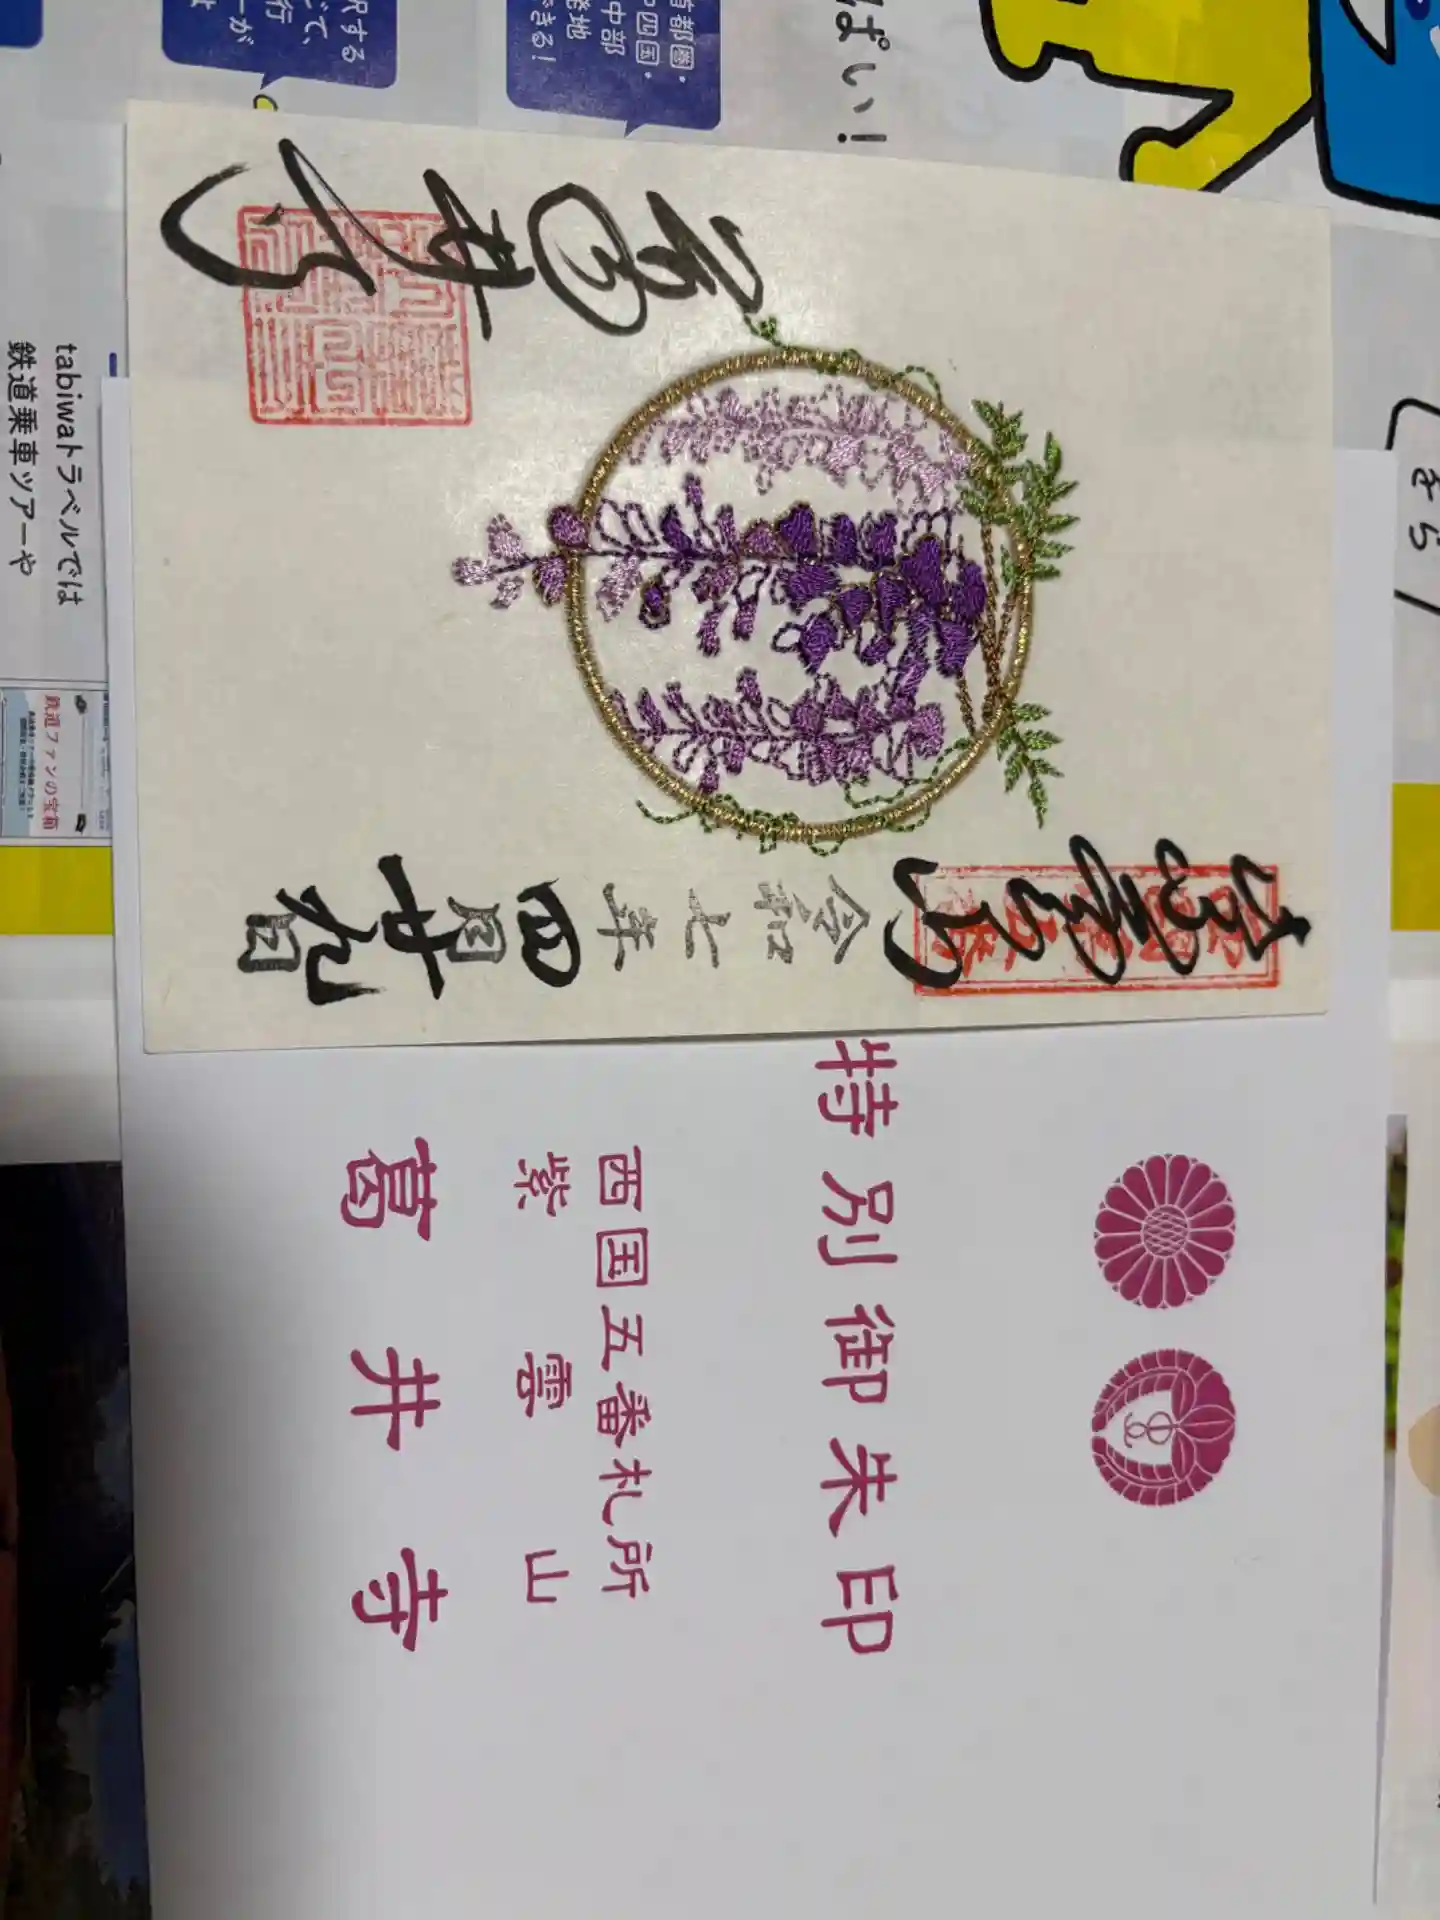 紫雲山
令和七年四月廿九日
葛井寺
特別御朱印
西国五番札所
紫雲山
葛井寺
ぱい！
首都圏・
中四国・
中部
発地
できる！
択する
tabiwaトラベルでは
鉄道乗車ツアーや
鉄道ファンの宝箱